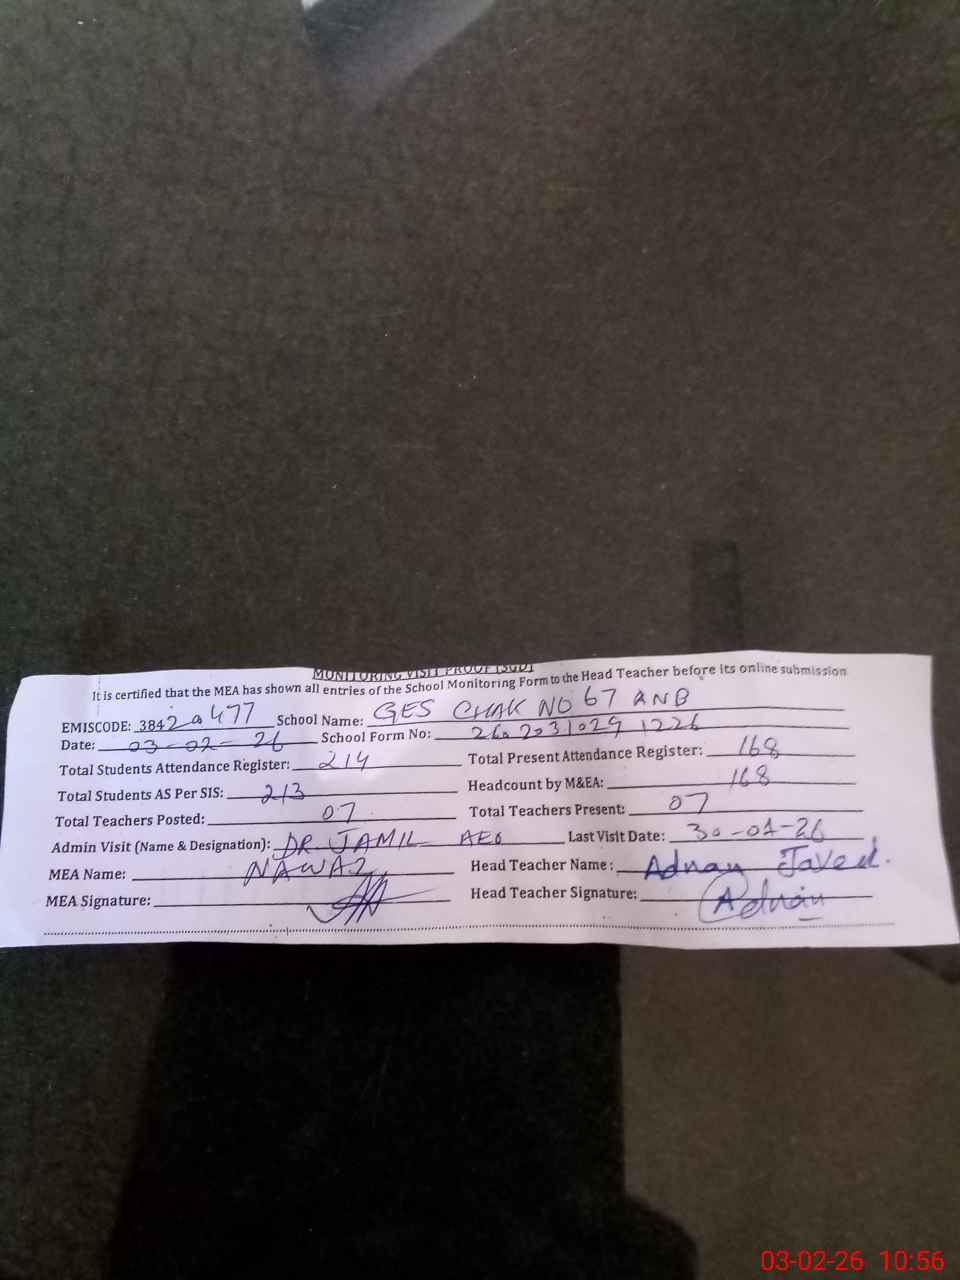 MONITORING VISIT PROOF (SGD)
It is certified that the MEA has shown all entries of the School Monitoring Form to the Head Teacher before its online submission
EMISCODE: 38420477 School Name: GES CHAK NO 67 ANB
Date: 03-02-26 School Form No: 2602031029 1226
Total Students Attendance Register: 214 Total Present Attendance Register: 168
Total Students AS Per SIS: 213 Headcount by M&EA: 168
Total Teachers Posted: 07 Total Teachers Present: 07
Admin Visit (Name & Designation): DR. JAMIL AEO Last Visit Date: 30-01-26
MEA Name: NAWAZ Head Teacher Name: Adnan Javed.
MEA Signature: Head Teacher Signature: Adnan
03-02-26 10:56